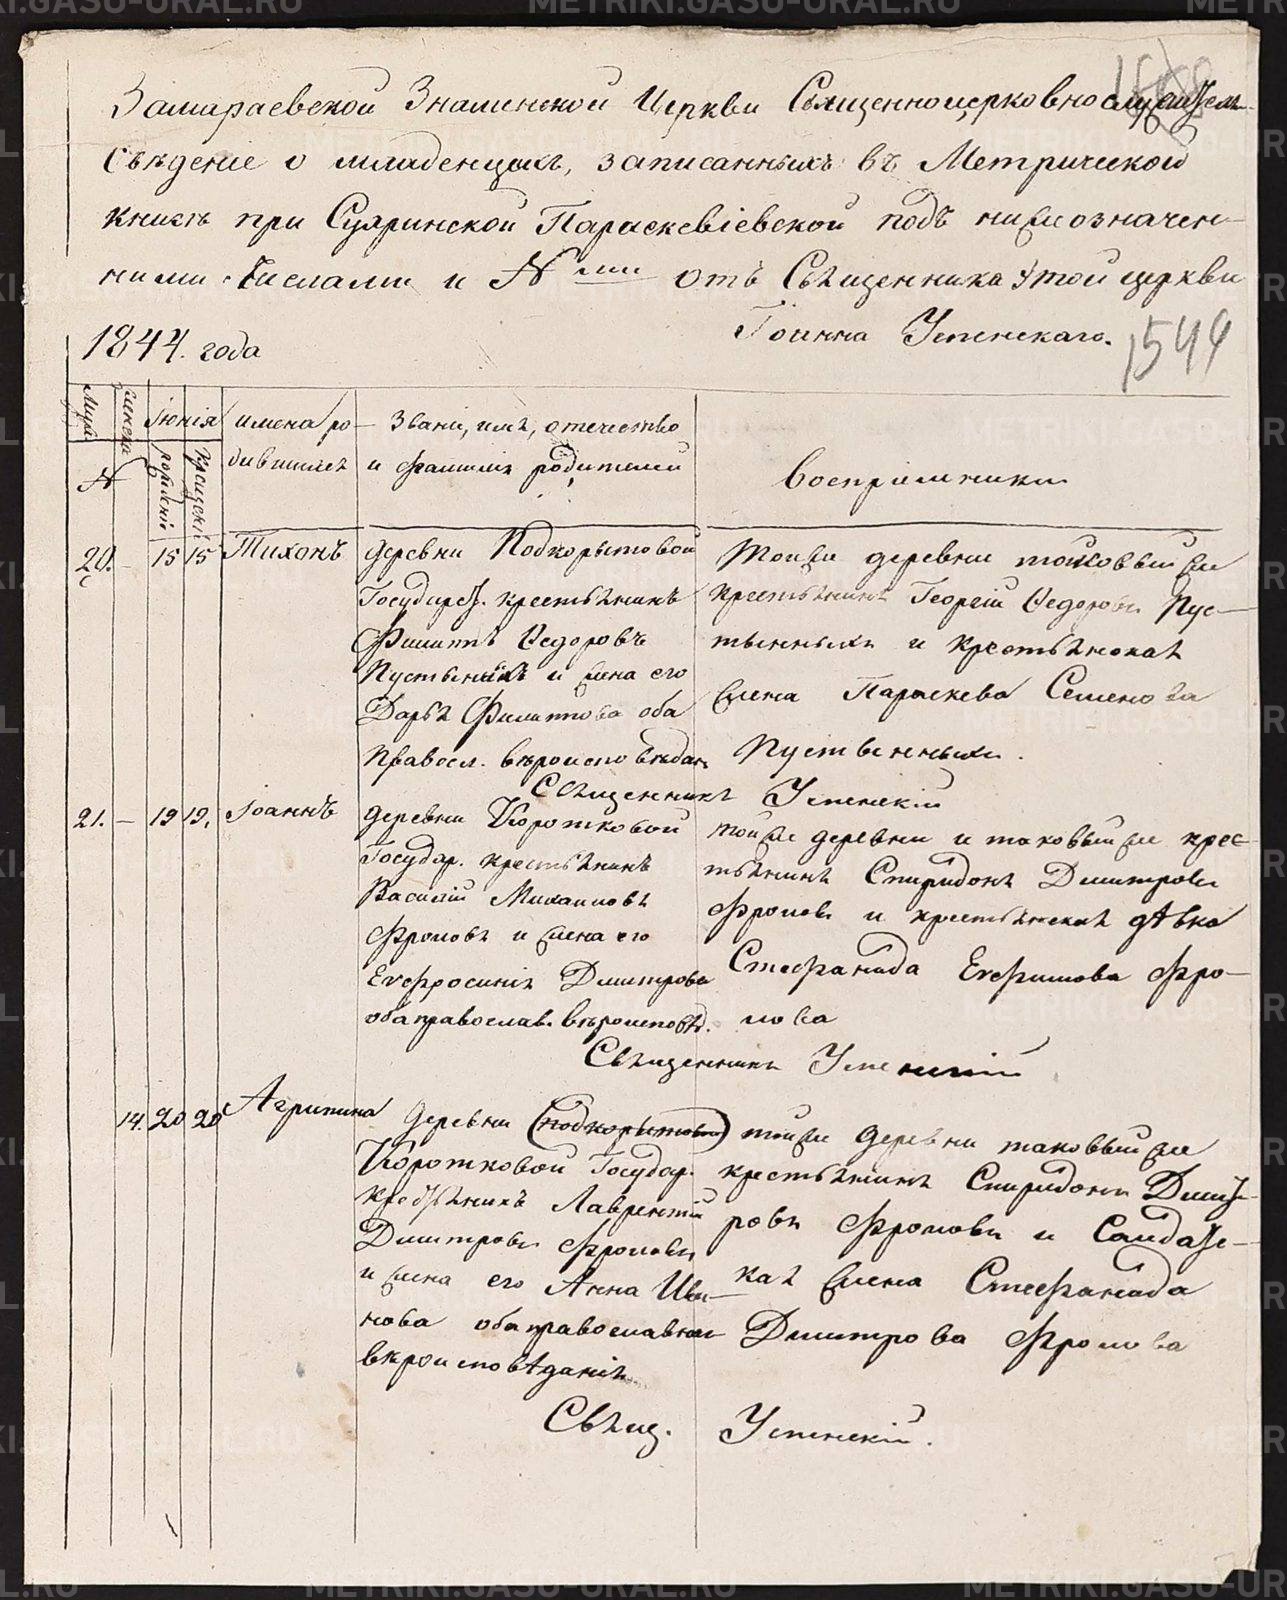 Замараевской Знаменской Церкви Священноцерковнослужителям
Свѣденіе о младенцахъ, записанныхъ въ Метрической
книгѣ при Суяринской Параскевіевской подъ нижеозначен-
ными числами и №ми отъ Священника этой церкви
Іоанна Успенскаго.
1599
1844. года
Муж.
женска
Іюнія
имена ро-
Звані, имя, отечество
№
рожденія
крещенія
дившихся
и фамилія родителей
воспріемники
20. – 15 15 Тихонъ
деревни Подкорытовой
Государст. крестьянинъ
Филиппъ Ѳедоровъ
Пустынныхъ и жена его
Дарья Филиппова оба
Правосл. вѣроисповѣдан.
Тойже деревни таковыйже
крестьянинъ Георгій Ѳедоровъ Пус-
тынныхъ и крестьянская
жена Параскева Семенова
Пустынныхъ.
Священникъ Успенскій
21. – 19 19. Іоаннъ
деревни Коротковой
Государ. крестьянинъ
Василій Михаиловъ
Фроловъ и жена его
Евфросинія Дмитрова
оба православ. вѣроисповѣд.
тойже деревни и таковыйже крес-
тьянинъ Спиридонъ Дмитровъ
Фроловъ и крестьянская дѣвка
Стефанида Евфимова Фро-
лова
Священникъ Успенскій
14. 20 20 Агрипина
деревни (подкорытовой)
Коротковой Государ.
крестьянинъ Лаврентій
Дмитровъ Фроловъ
и жена его Анна Ива-
нова оба православнаг
вѣроисповѣданія
тойже деревни таковыйже
крестьянинъ Спиридонъ Дмит-
ровъ Фроловъ и Солдатс-
кая жена Стефанида
Дмитрова Фролова
Свящ. Успенскій.
METRIKI.GASU-URAL.RU